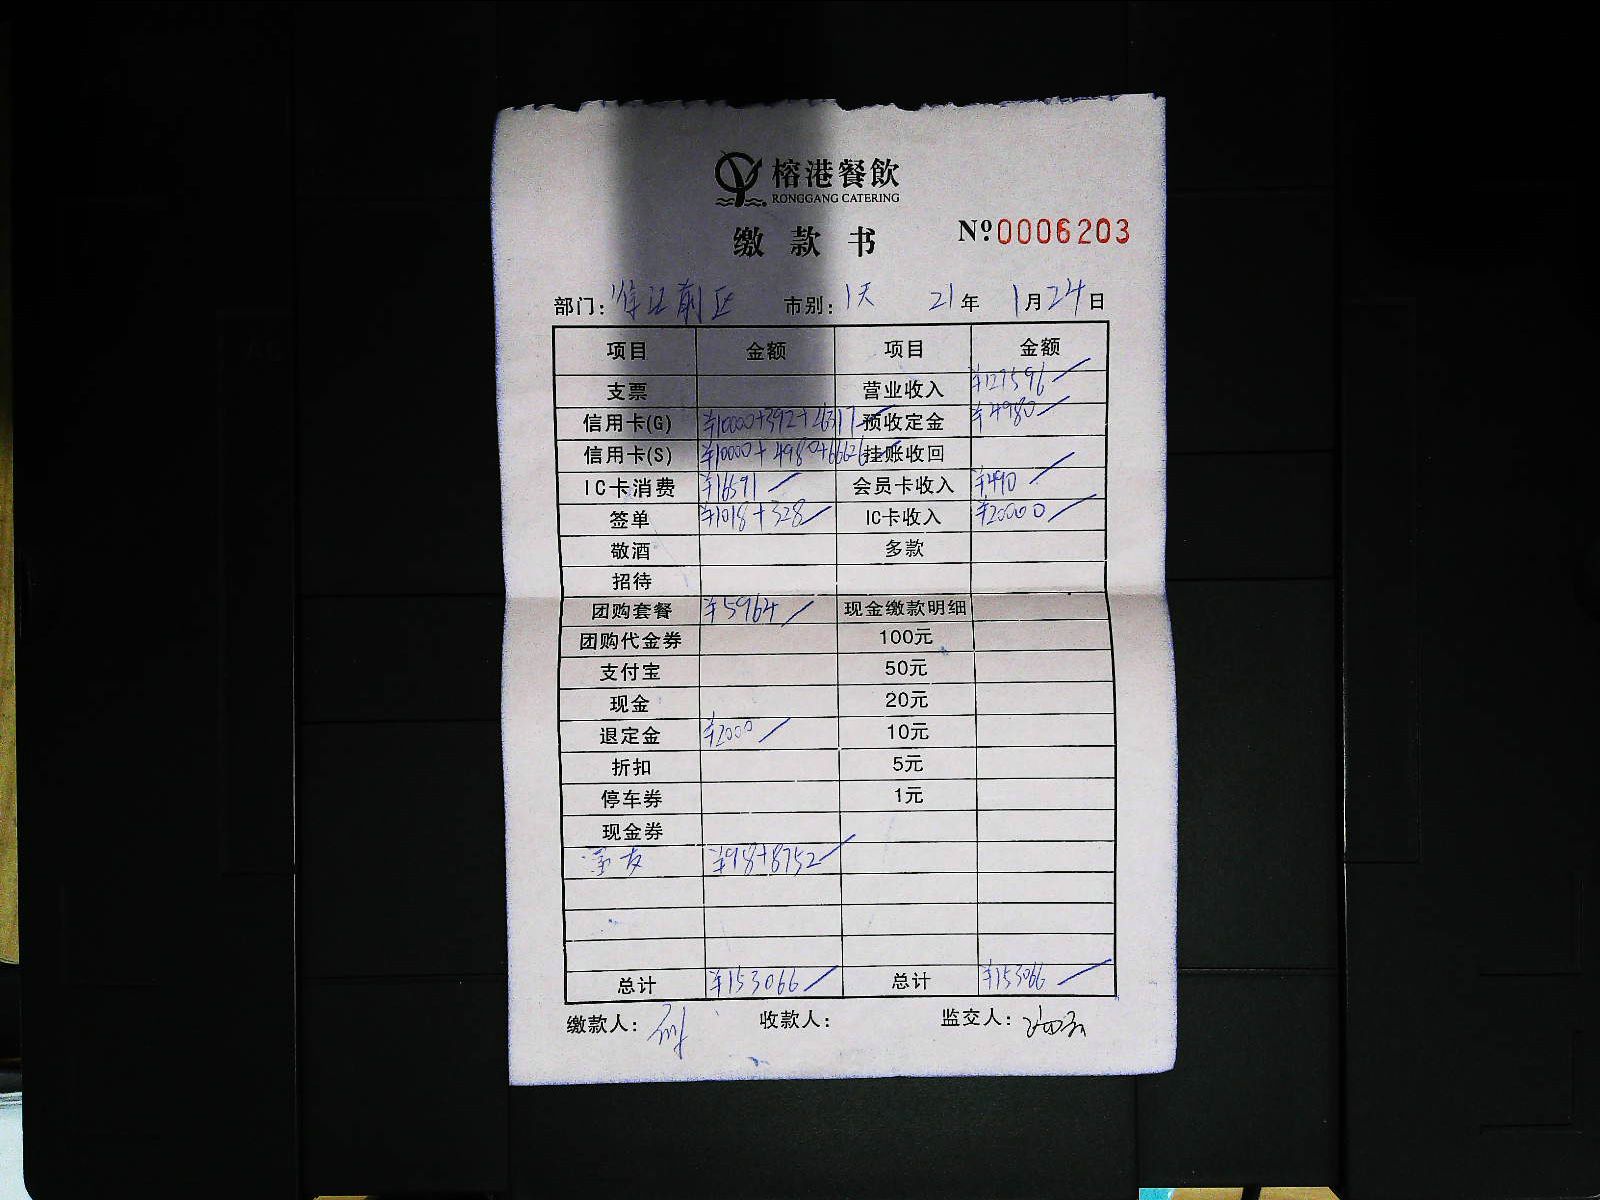 榕港餐飲
RONGGANG CATERING
缴款书 Nº 0006203
部门: 前区 市别: 1天 21年 1月24日
项目 金额 项目 金额
支票 营业收入 ¥127596
信用卡(G) ¥10000+392+26317 预收定金 ¥4980
信用卡(S) ¥10000+4980+66626 挂账收回
IC卡消费 ¥16591 会员卡收入 ¥490
签单 ¥1018+328 IC卡收入 ¥20000
敬酒 多款
招待
团购套餐 ¥5964 现金缴款明细
团购代金券 100元
支付宝 50元
现金 20元
退定金 ¥2000 10元
折扣 5元
停车券 1元
现金券
¥98+8752
总计 ¥153066 总计 ¥153066
缴款人: 收款人: 监交人: